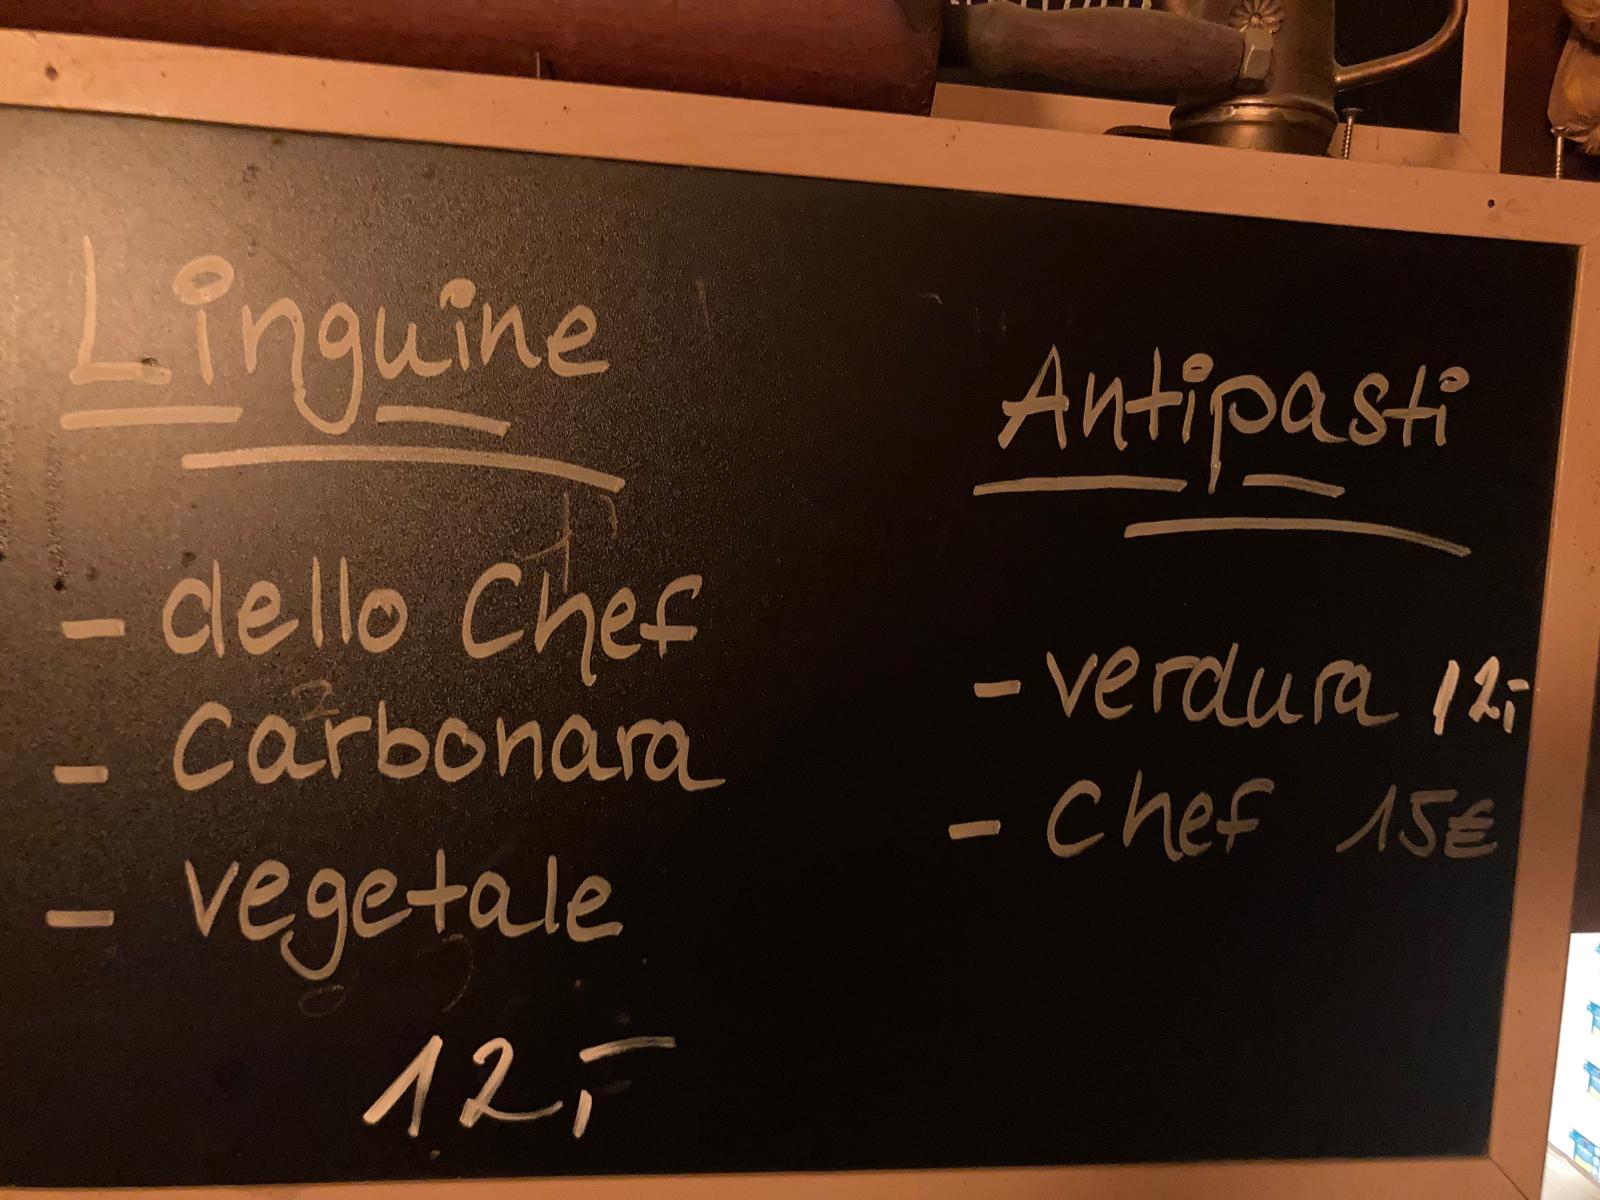 Linguine
- dello Chef
- Carbonara
- vegetale
12,-
Antipasti
- verdura 12,-
- Chef 15€